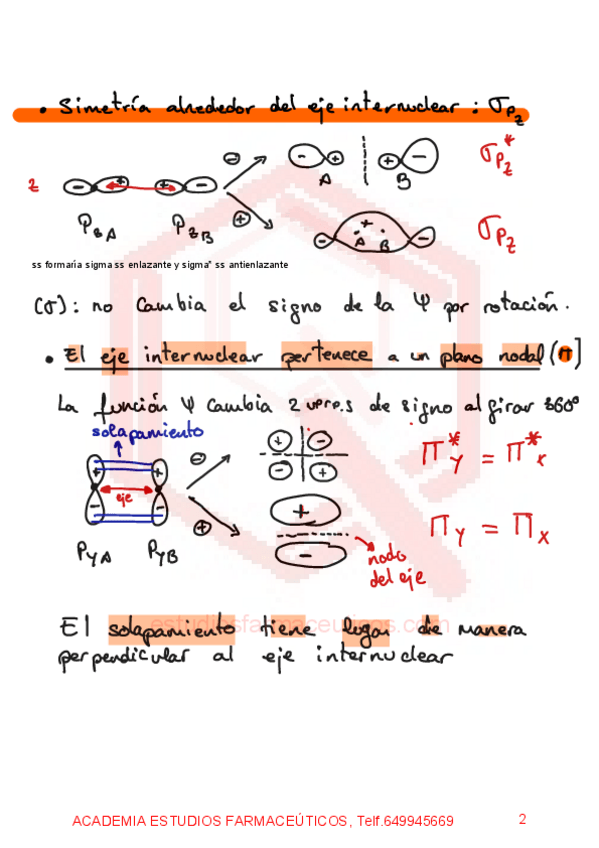 • Simetría alrededor del eje internuclear : σpz
⊖
- + + - A B σpz*
z - + + -
φzA φzB ⊕
- + - A B σpz
ss formaría sigma ss enlazante y sigma* ss antienlazante
(σ): no cambia el signo de la Ψ por rotación.
• El eje internuclear pertenece a un plano nodal (π)
La función Ψ cambia 2 veces de signo al girar 360º
solapamiento
⊖ + - - + π*y = π*x
+ + eje - -
⊕ + - πy = πx
PyA PyB
nodo
del eje
El solapamiento tiene lugar de manera
estudiosfarmaceuticos.com
perpendicular al eje internuclear
ACADEMIA ESTUDIOS FARMACEÚTICOS, Telf.649945669
2